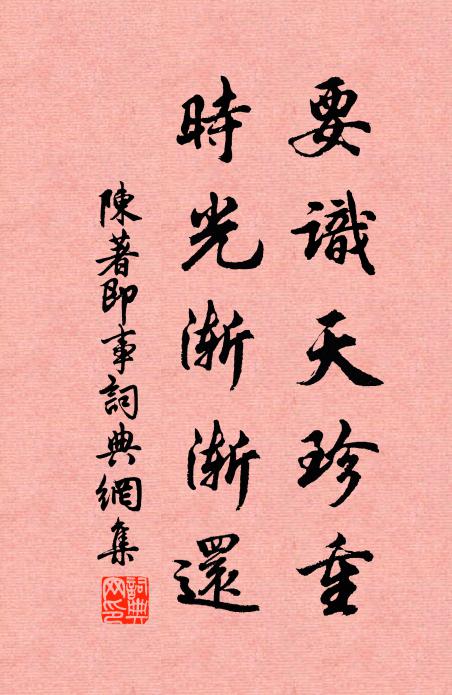 要識天珍重
時光渐渐還
陳著即事詞典網集
詞典网印